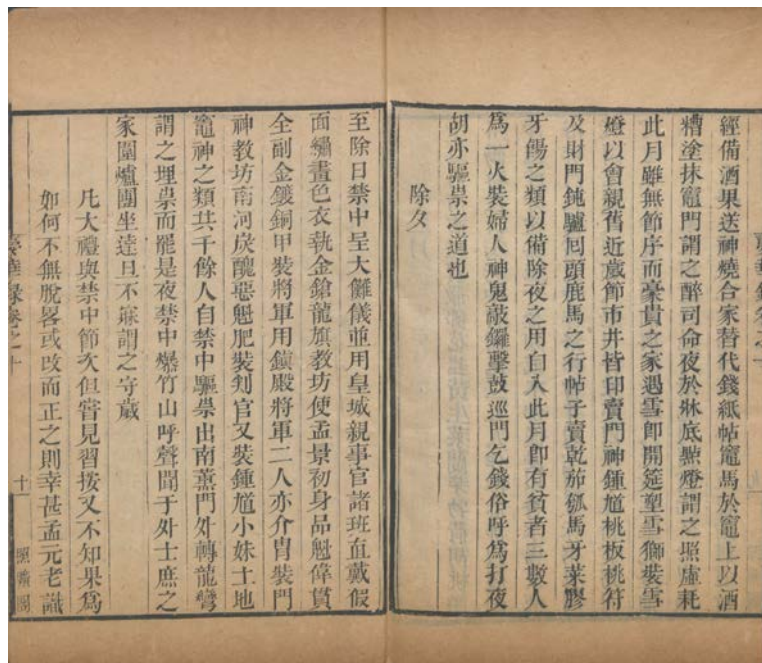 經備酒果送神燒合家替代錢紙帖竈馬於竈上以酒
糟塗抹竈門謂之醉司命夜於牀底㸃燈謂之照虛耗
此月雖無節序而豪貴之家遇雪即開筵塑雪獅裝雪
燈以會親舊近歲節市井皆印賣門神鍾馗桃板桃符
及財門鈍驢回頭鹿馬之行帖子賣乾茄瓠馬牙菜膠
牙餳之類以備除夜之用自入此月即有貧者三數人
爲一火裝婦人神鬼敲鑼擊鼓巡門乞錢俗呼爲打夜
胡亦驅祟之道也
除夕
至除日禁中呈大儺儀並用皇城親事官諸班直戴假
面繡畫色衣執金鎗龍旗教坊使孟景初身品魁偉貫
全副金鍍銅甲裝將軍用鎮殿將軍二人亦介胄裝門
神教坊南河炭醜惡魁肥裝判官又裝鍾馗小妹土地
竈神之類共千餘人自禁中驅祟出南薰門外轉龍彎
謂之埋祟而罷是夜禁中爆竹山呼聲聞于外士庶之
家圍爐團坐達旦不寐謂之守歲
凡大禮與禁中節次但嘗見習按又不知果爲
如何不無脫畧或改而正之則幸甚孟元老識
夢華錄卷之十
十
照曠閣